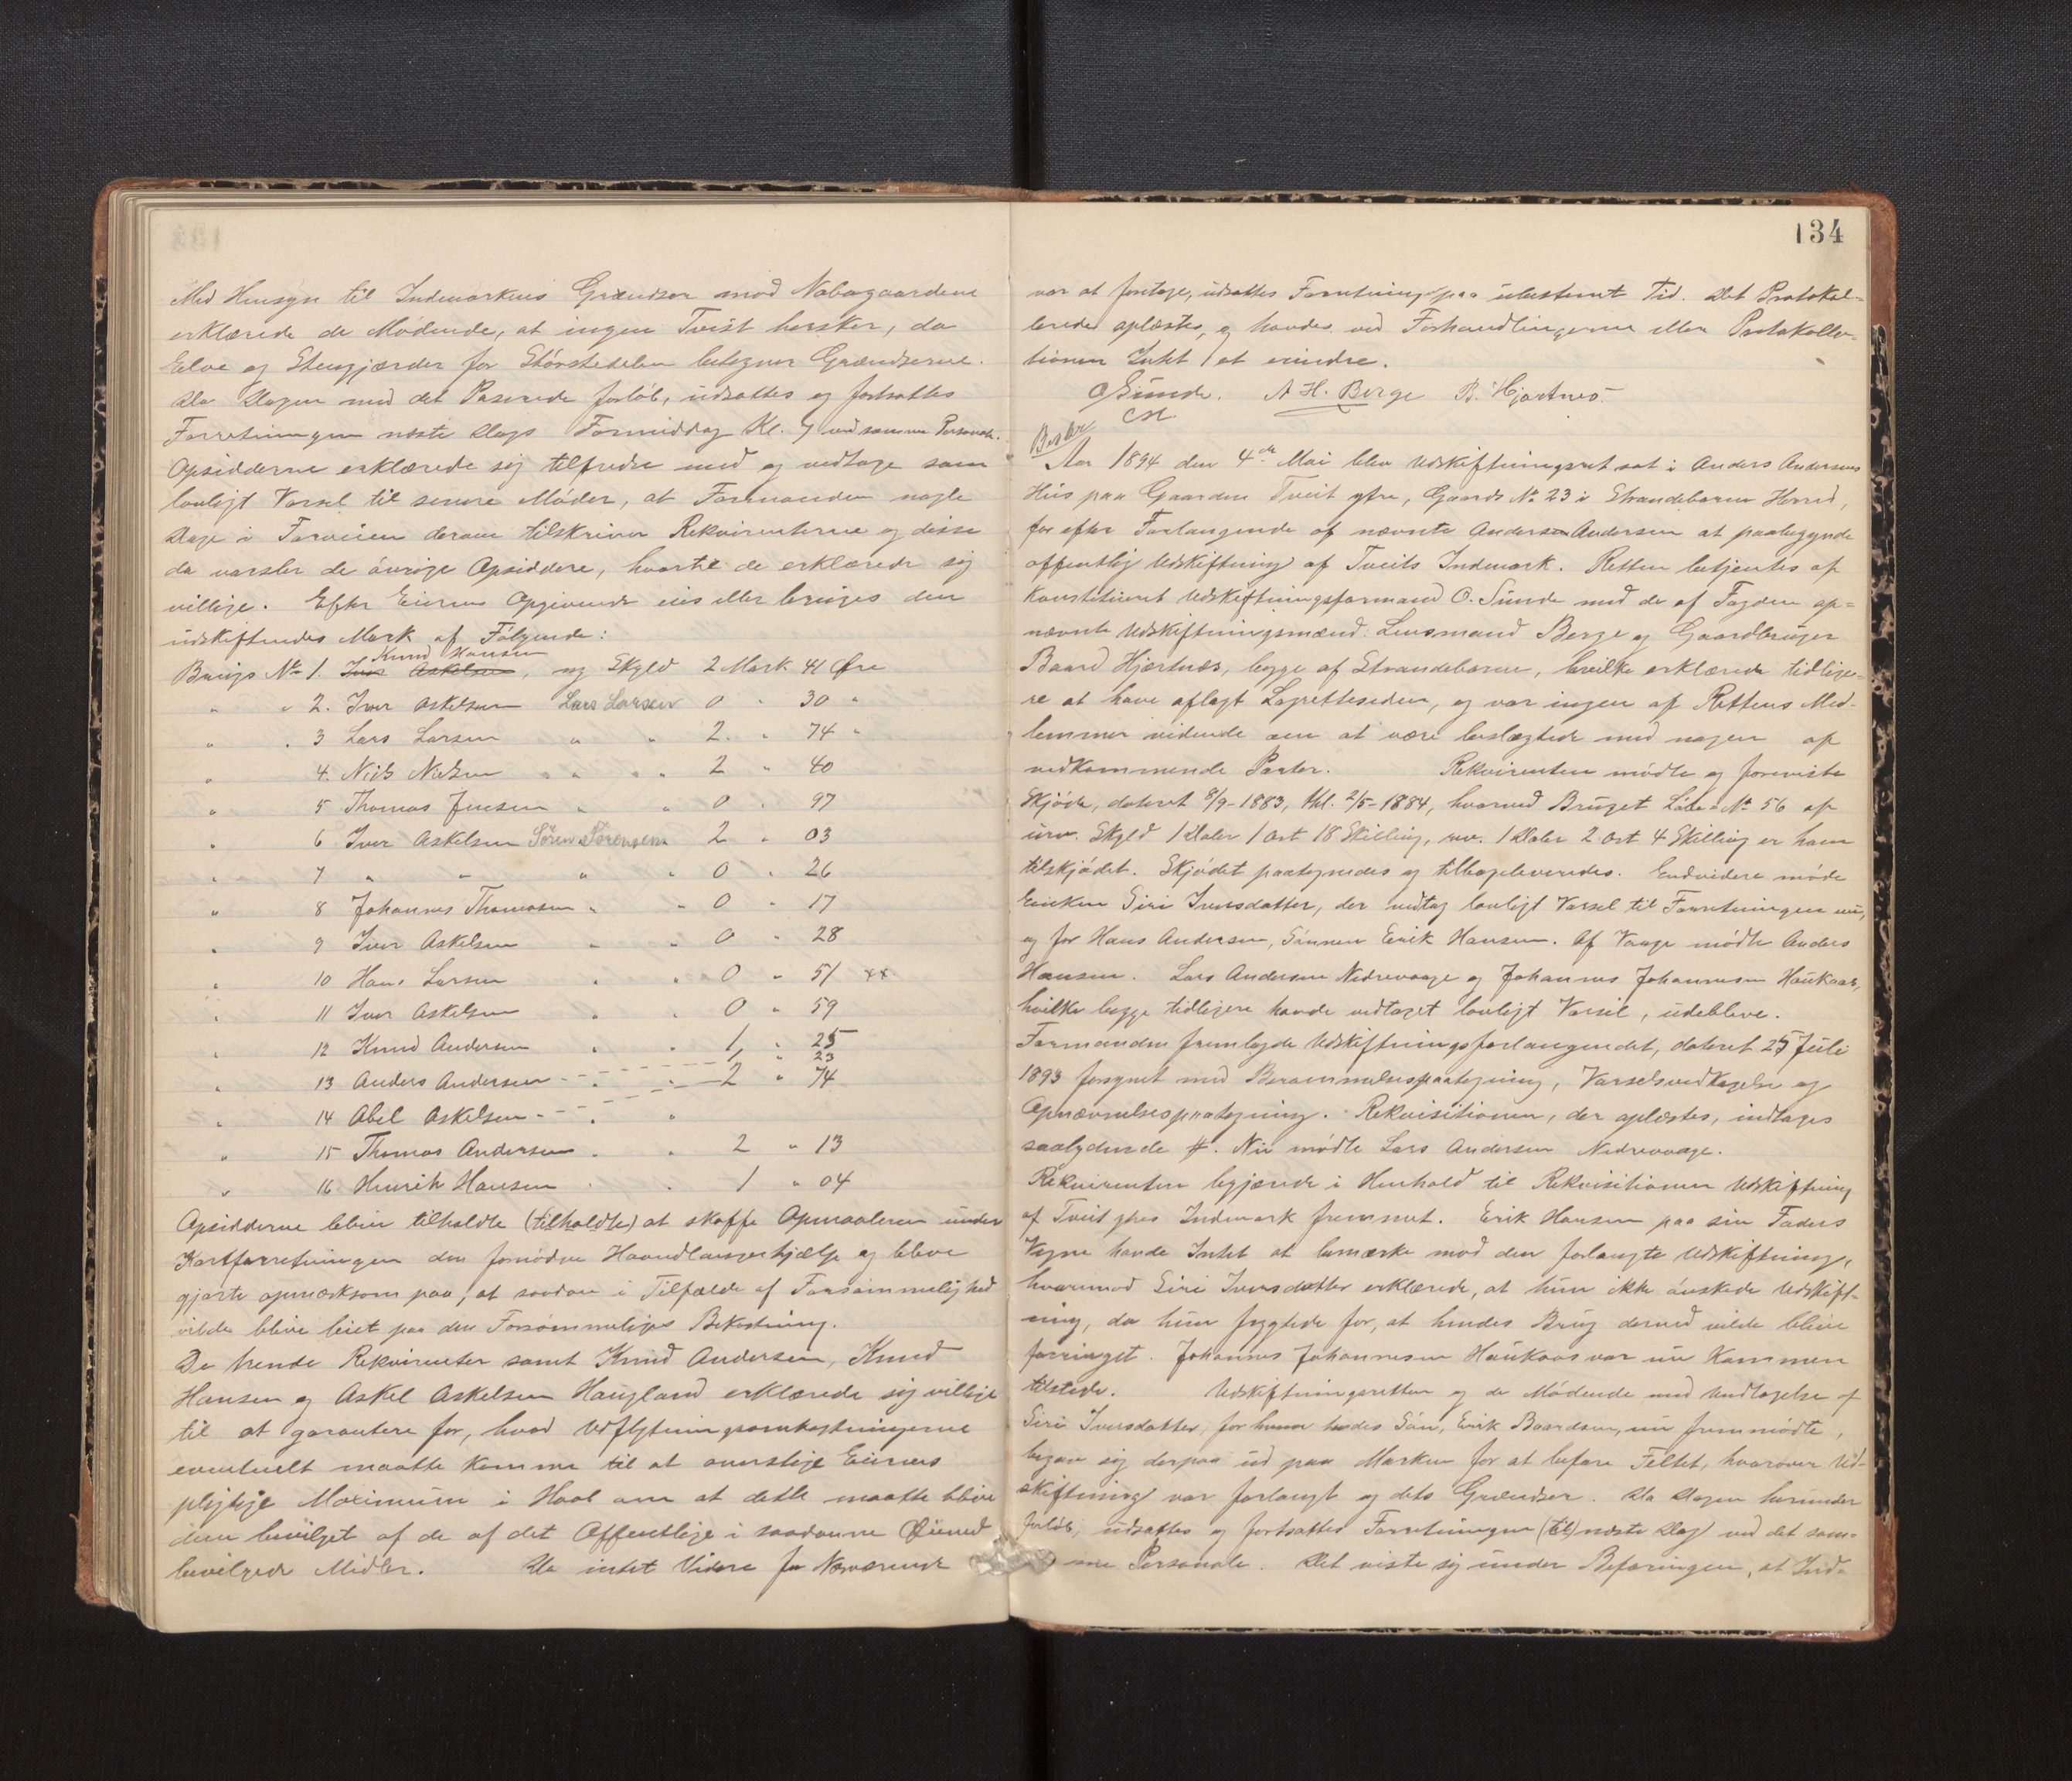 Med Hensyn til Indmarkens Grændser mod Nabogaardene
erklærede de Mødende, at ingen Tvist hersker, da
Elve og Stengjærder for Størstedelen betegner Grændserne.
Da Dagen med det Passerede forløb, udsattes og fortsattes
Forretningen næste Dags Formiddag Kl. 9 ved samme Personale.
Opsidderne erklærede sig tilfredse med og vedtage som
lovligt Varsel til senere Møder, at Formanden nogle
Dage i Forveien derom tilskriver Rekvirenterne og disse
da varsler de øvrige Opsiddere, hvortil de erklærede sig
villige. Efter Eiernes Opgivende eies eller bruges den
udskiftendes Mark af Følgende:
Knud Hansen
Brugs No 1. Iver Askelsen, ny Skyld 2 Mark 41 Øre
" " 2. Iver Askelsen Lars Larsen 0 " 30 "
" " 3 Lars Larsen " " 2. " 74 "
" 4. Niels Nielsen " " 2 " 40
" 5 Thomas Jensen " " 0 " 97
" 6 Iver Askelsen Søren Sørensen 2 " 03
" 7 " " " " 0 " 26
" 8 Johannes Thomasen " " 0 " 17
" 9 Iver Askelsen " " 0 " 28
" 10 Hans Larsen " " 0 " 51
" 11 Iver Askelsen " " 0 " 59
" 12 Knud Andersen " " 1 " 25
1 " 23
" 13 Anders Andersen " " 2 " 74
" 14 Abel Askelsen " "
" 15 Thomas Andersen " " 2 " 13
" 16 Henrik Hansen " " 1 " 04
Opsidderne bleve tilholdte (tilholdte) at skaffe Opmaaleren under
Kartforretningen den fornødne Haandlangerhjælp og bleve
gjorte opmærksom paa, at saadan i Tilfælde af Forsømmelighed
vilde blive leiet paa den Forsømmeliges Bekostning.
De trende Rekvirenter samt Knud Andersen, Knud
Hansen og Askel Askelsen Haugland erklærede sig villige
til at garantere for, hvad Udflytningsomkostningerne
eventuelt maatte komme til at overstige Eiernes
pligtige Maximum i Haab om at dette maatte blive
dem bevilget af de af det Offentlige i saadanne Øiemed
bevilgede Midler. Da intet Videre for Nærværende
134
var at foretage, udsattes Forretningen paa ubestemt Tid. Det Protokol-
lerede oplæstes, og havdes ved Forhandlingerne eller Protokolla-
tionen Intet at erindre.
O Sunde. A H. Berge B. Hjartnes
Aar 1894 den 4de Mai blev Udskiftningsret sat i Anders Andersens
Hus paa Gaarden Tveit ytre, Gaards No 23 i Strandebarm Herred,
for efter Forlangende af nævnte Anders Andersen at paabegynde
offentlig Udskiftning af Tveits Indmark. Retten betjentes af
Konstitueret Udskiftningsformand O. Sunde med de af Fogden op-
nævnte Udskiftningsmænd: Lensmand Berge og Gaardbruger
Baard Hjartnæs, begge af Strandebarm, hvilke erklærede tidlige-
re at have aflagt Lagretteseden, og var ingen af Rettens Med-
lemmer vidende om at være beslægtede med nogen af
vedkommende Parter. Rekvirenten mødte og foreviste
Skjøde, dateret 8/9-1883, thl. 2/5-1884, hvorved Bruget Løbe-No 56 af
urv. Skyld 1 Daler 1 Ort 18 Skilling, rev. 1 Daler 2 Ort 4 Skilling er ham
tilskjødet. Skjødet paategnedes og tilbageleveredes. Endvidere møde
Enken Siri Iversdatter, der vedtog lovligt Varsel til Forretningen nu,
og for Hans Andersen, Sønnen Erik Hansen. Af Vaage mødte Anders
Hansen. Lars Andersen Nedrevaage og Johannes Johannesen Haukaas,
hvilke begge tidligere havde vedtaget lovligt Varsel, udebleve.
Formanden fremlagde Udskiftningsforlangendet, dateret 25 Juli
1893 forsynet med Berammelsespaategning, Varselsvedtagelse og
Opnævnelsespaategning. Rekvisitionen, der oplæstes, indtages
saalydende #. Nu mødte Lars Andersen Nedrevaage.
Rekvirenten begjærede i Henhold til Rekvisitionen Udskiftning
af Tveit ytres Indmark fremmet. Erik Hansen paa sin Faders
Vegne havde Intet at bemærke mod den forlangte Udskiftning,
hvorimod Siri Iversdatter erklærede, at hun ikke ønskede Udskift-
ning, da hun frygtede for, at hendes Brug derved vilde blive
forringet. Johannes Johannesen Haukaas var nu kommen
tilstede. Udskiftningsretten og de Mødende med Undtagelse af
Siri Iversdatter, for hvem hendes Søn, Erik Baardsen, nu fremmødte,
begav sig derpaa ud paa Marken for at befare Feltet, hvorover Ud-
skiftning var forlangt og dets Grændser. Da Dagen herunder
forløb, udsattes og fortsattes Forretningen (til) næste Dag ved det sam-
me Personale. Det viste sig under Befaringen, at Ind-